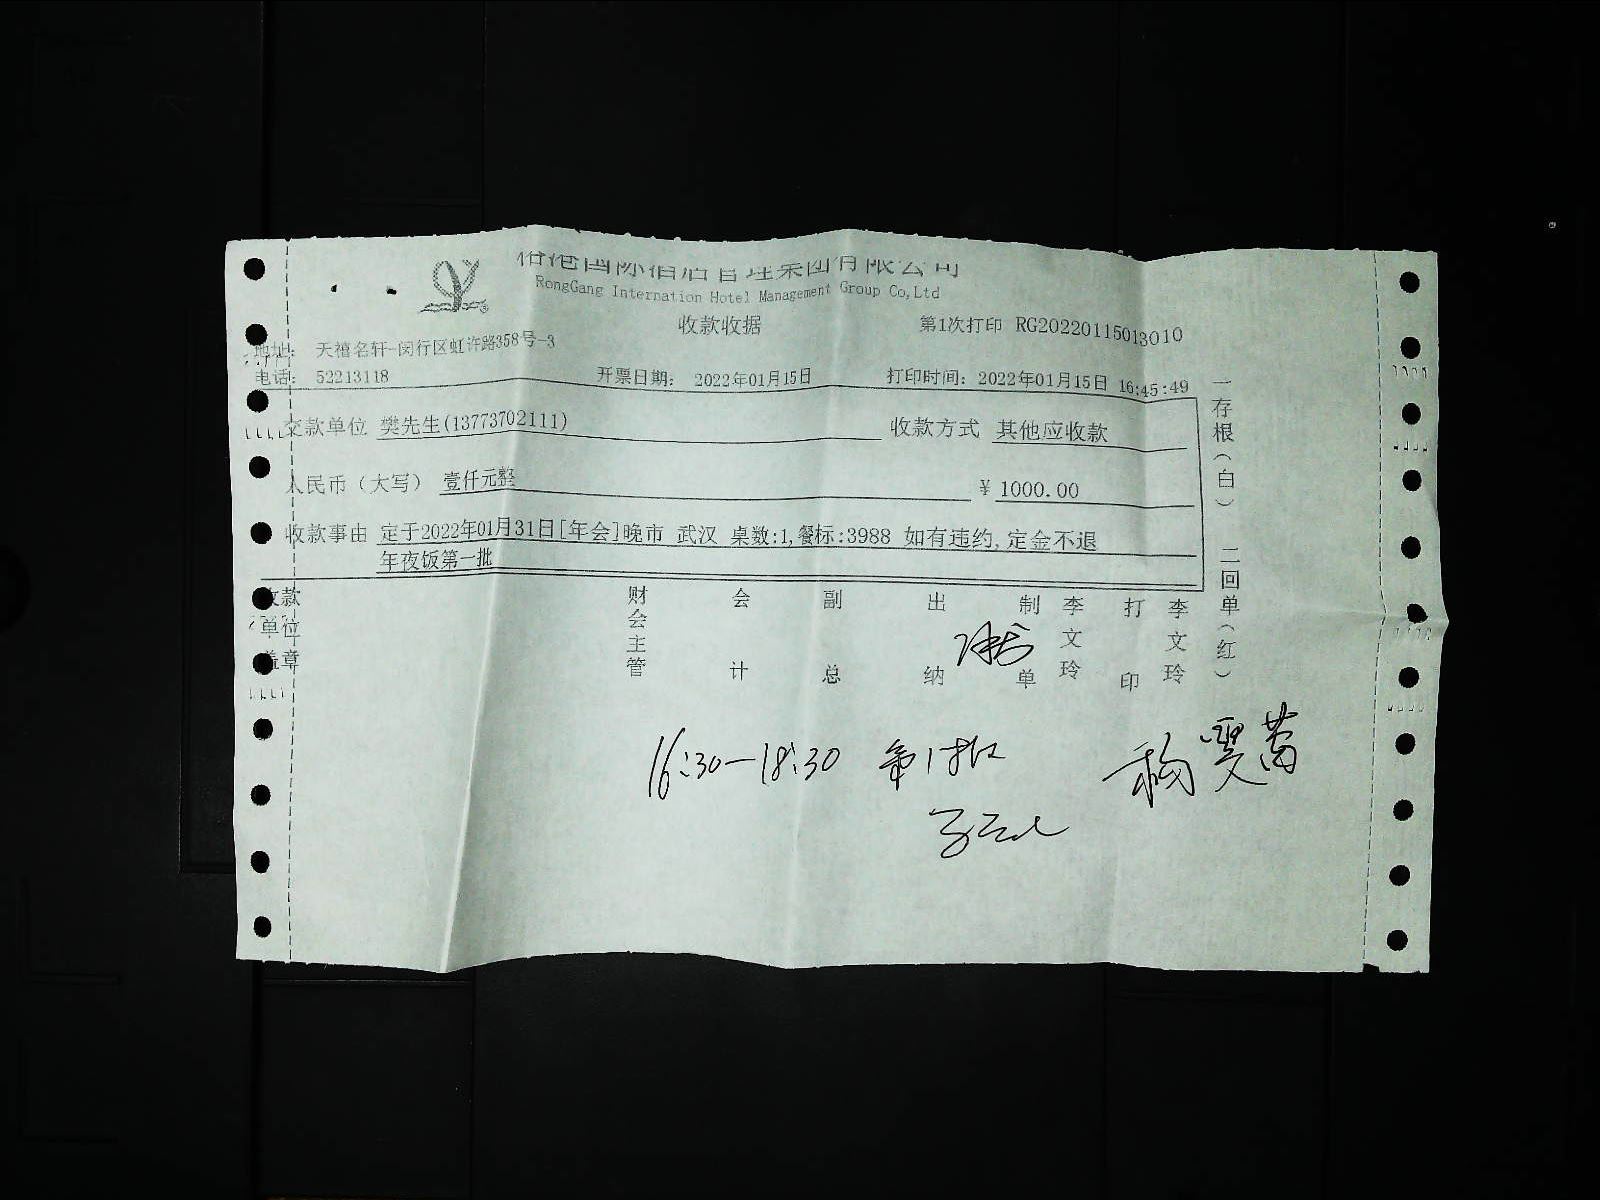 港国际酒店管理集团有限公司
RongGang Internation Hotel Management Group Co,Ltd
收款收据
第1次打印 RG20220115013010
地址： 天禧名轩-闵行区虹许路358号-3
电话： 52213118 开票日期： 2022年01月15日 打印时间：2022年01月15日 16:45:49
交款单位 樊先生(13773702111) 收款方式 其他应收款
人民币（大写） 壹仟元整 ￥ 1000.00
收款事由 定于2022年01月31日[年会]晚市 武汉 桌数:1,餐标:3988 如有违约,定金不退
年夜饭第一批
收款单位盖章 财会主管 会计 副总 出纳 制单 李文玲 打印 李文玲
一存根（白） 二回单（红）
16:30—18:30 第1批 杨雯蕾